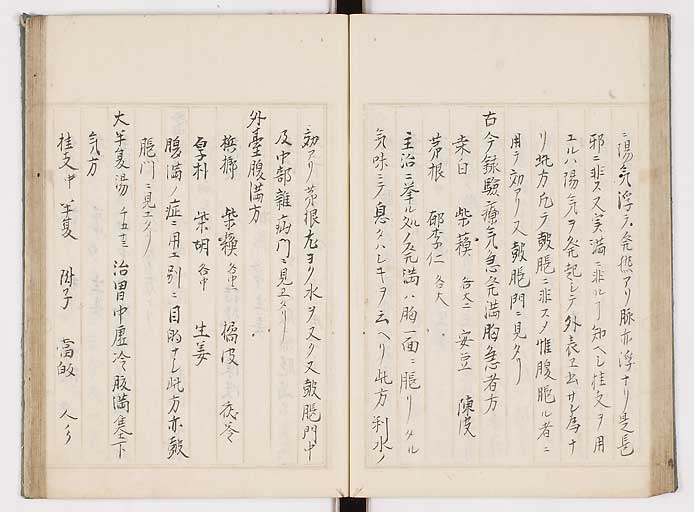 ニ陽気浮テ発熱アリ脉亦浮ナリ是邪ニ非ス
又実満ニ非ル丁知ヘシ桂支ヲ用
ユルハ陽気ヲ発起シテ外表エ出サシ為ナ
リ此方凡テ皷脹ニ非スメ惟腹脹ル者ニ
用テ効アリ又皷脹門ニ見タリ
古今録験療気急発満胸急者方
桒白 紫蘓 各大二 安豆 陳皮
茅根 郁李仁 各大
主治ニ挙ル処ノ発満ハ胸一面ニ脹リタル
気味ニテ息タハシキヲ云ヘリ此方利水ノ
効アリ茅根尤ヨク水ヲスクス又皷脹門中
及中部雜病門ニ見エタリ
外臺腹満方
檳榔 紫蘓 各中 橘皮 茯苓
厚朴 柴胡 各中 生姜
腹満ノ症ニ用エ別ニ目的ナシ此方亦皷
脹門ニ見エタリ
大半夏湯 治胃中虚冷腹満塞下
気方
桂支中 半夏 附子 當皈 人彡